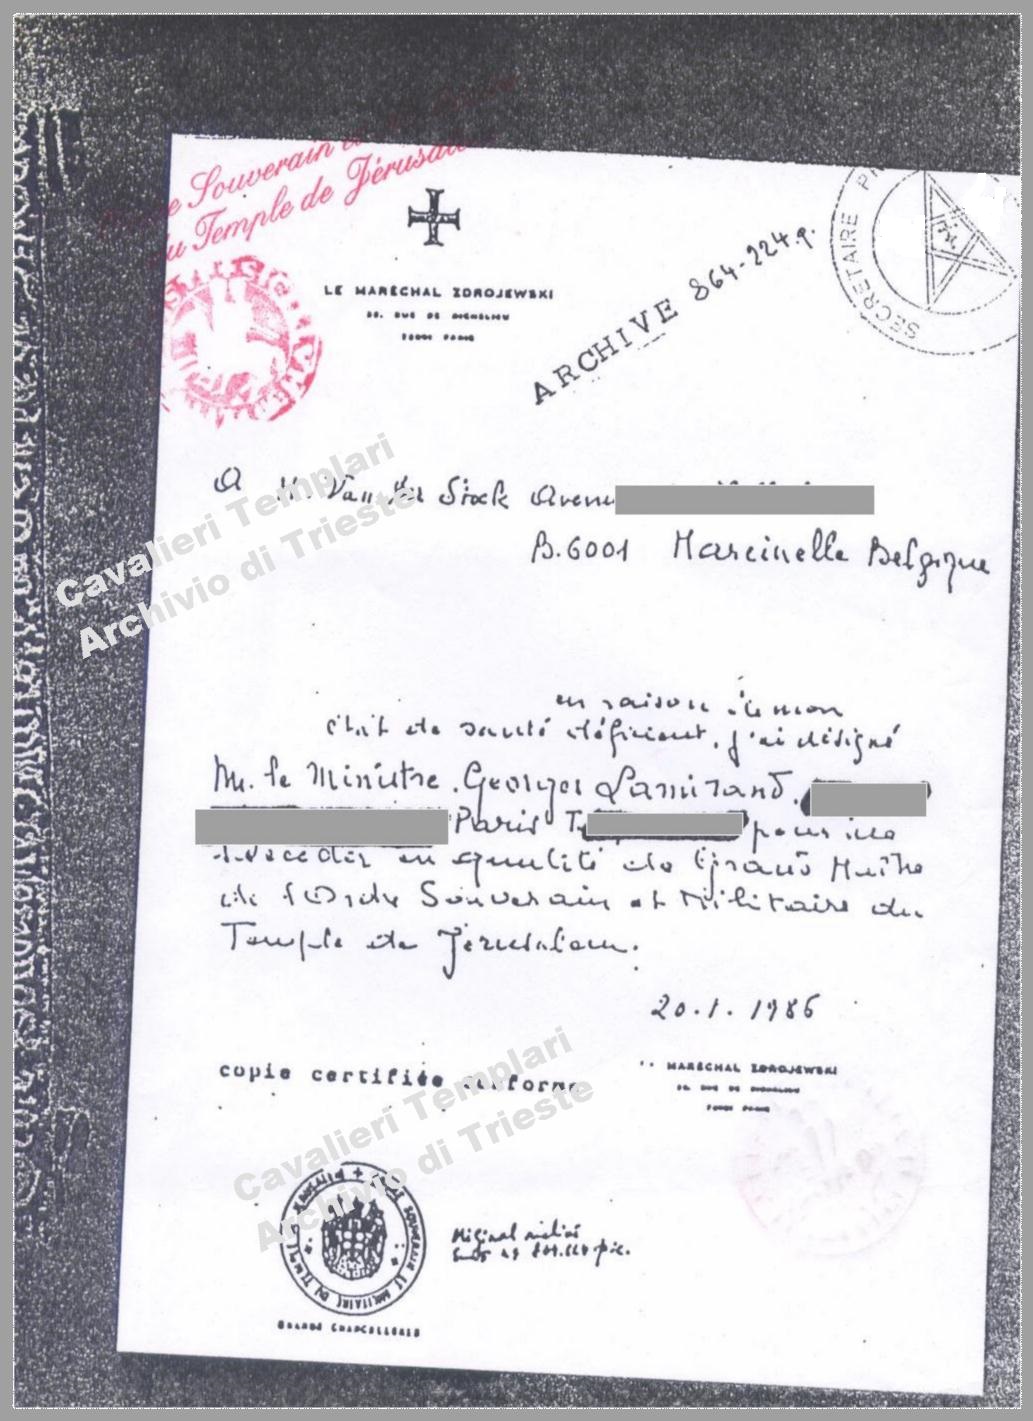 Souverain et
du Temple de Jérusalem
LE MARÉCHAL ZDROJEWSKI
RUE DE RICHELIEU
PARIS
ARCHIVE 864-224 q.
SECRETAIRE
A M. Van der Stock Avenue
B.6001 Marcinelle Belgique
Cavalieri Templari
Archivio di Trieste
en raison de mon
état de santé déficient, j'ai désigné
M. le Ministre Georges Lamirand,
Paris T pour me
succéder en qualité de Grand Maître
de l'Ordre Souverain et Militaire du
Temple de Jérusalem.
20.1.1986
copie certifiée conforme
MARÉCHAL ZDROJEWSKI
RUE DE RICHELIEU
PARIS
Cavalieri Templari
Archivio di Trieste
SOUVERAIN ET MILITAIRE DU TEMPLE
GRANDE CHANCELLERIE